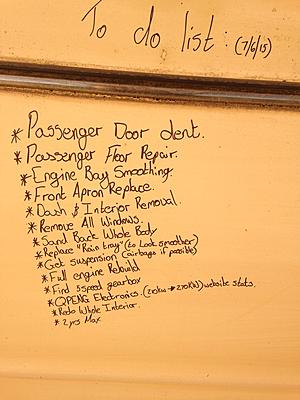 To do list : (7/6/15)
* Passenger Door dent.
* Passenger Floor Repair.
* Engine Bay Smoothing.
* Front Apron Replace.
* Dash & Interior Removal.
* Remove All Windows.
* Sand Back Whole Body
* Replace "Rain tray" (to Look smoother)
* Get suspension (airbags if possible)
* Full engine Rebuild
* Find 5speed gearbox
* QPENG Electronics. (210kw → 270KW) website stats.
* Redo Whole Interior.
* 2 yrs Max